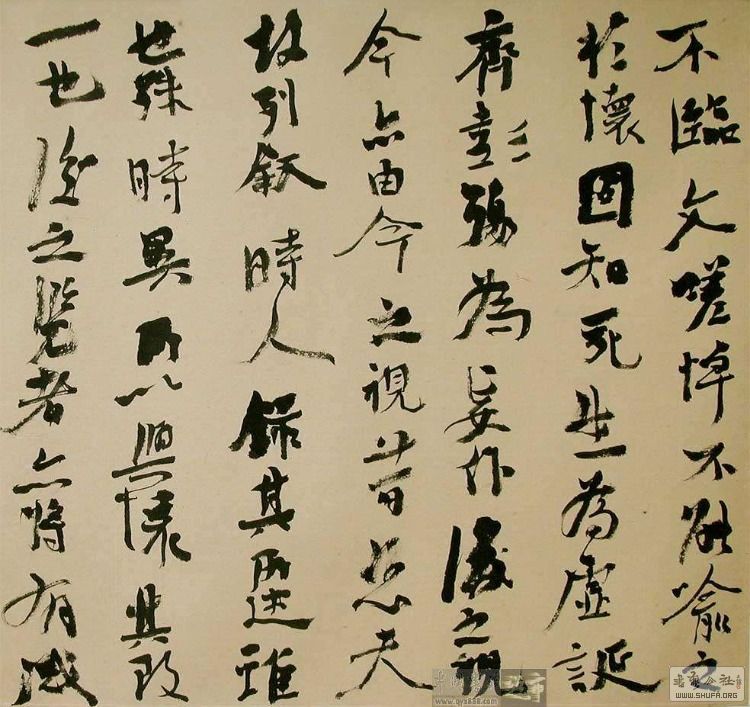 不臨文嗟悼不能喻之
於懷固知死生一為虛誕
齊彭殤為妄作後之視
今亦由今之視昔悲夫
故列敘時人錄其所述雖
世殊時異所以興懷其致
一也後之覽者亦將有感
WWW.SHUFA.ORG